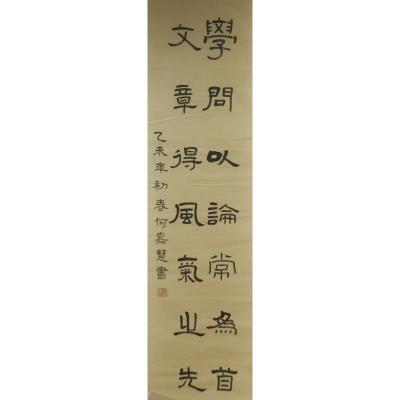 學問以論常為首
文章得風氣之先
乙未年初春何嘉慧書